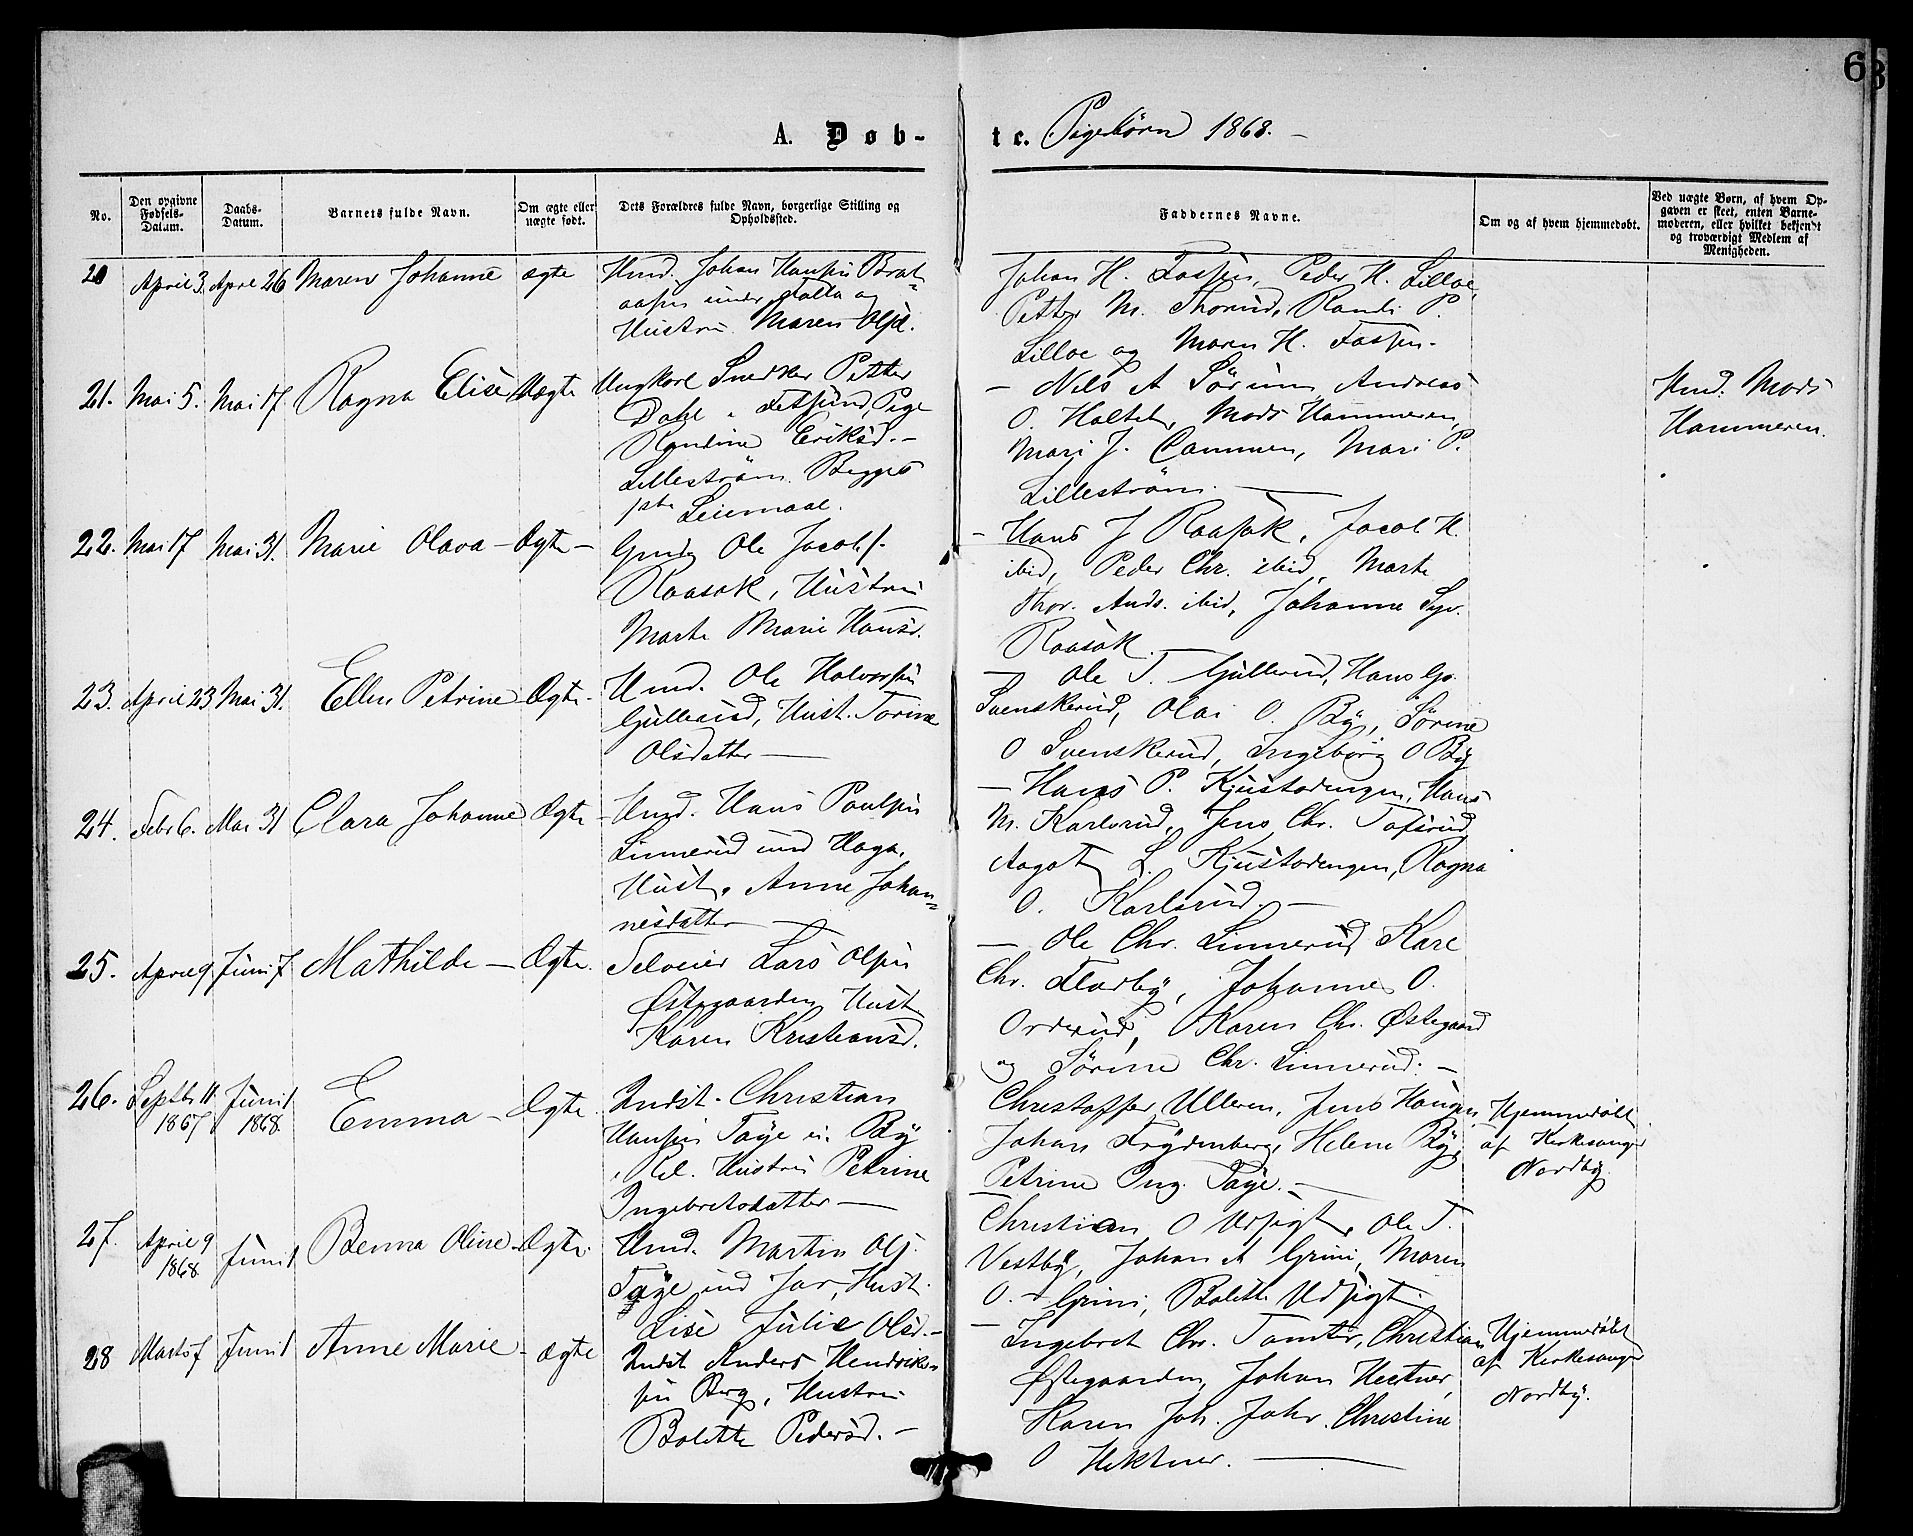 6
A. Døb-
te. Pigebörn 1868. -
No.
Den opgivne Fødsels-Datum.
Daabs-Datum.
Barnets fulde Navn.
Om ægte eller uægte født.
Dets Forældres fulde Navn, borgerlige Stilling og Opholdssted.
Faddernes Navne.
Om og af hvem hjemmedøbt.
Ved uægte Børn, af hvem Opgaven er skeet, enten Barnemoderen, eller hvilket bekjendt og troværdigt Medlem af Menigheden.
20 April 3. April 26 Maren Johanne ægte
Hmd. Johan Hansen Braat=
aasen under Falla og
Hustru Maren Olsd.
Johan H. Fossen, Peder H. Lilloe,
Petter M. Thorud, Randi P.
Lilloe og Maren H. Fossen.
21. Mai 5. Mai 17. Ragna Elise Uægte
Ungkarl Snedker Petter
Dahl i Fetsund, Pige
Randine Eriksd. -
Lillestrøm. Begges
1ste Leiermaal.
- Nils A Sörum Andreas
O. Haltet, Mads Hammeren,
Mari J. Cammen, Mari P.
Lillestrøm.
Hmd. Mads
Hammeren.
22. Mai 17 Mai 31. Marie Olava - Ægte -
Gmdg Ole Jacobs.
Raasok, Hustru
Marte Marie Hansd.
- Hans J Raasok, Jacob H.
ibid, Peder Chr. ibid, Marte
Thor. Ands. ibid, Johanne Syv.
Raasok.
23. April 23 Mai 31. Ellen Petrine Ægte.
Hmd. Ole Halvorsen
Gullerud, Hust. Torine
Olsdatter
- Ole T. Gullerud, Hans Gs.
Svenskerud, Olai O. By, Sörine
O Svenskerud, Ingeborg O By
24. Febr 6. Mai 31 Clara Johanne Ægte
Hmd. Hans Paulsen
Linnerud und Haga,
Hust. Anne Johan=
nesdatter
- Hans P. Kjustadengen, Hans
M. Karlsrud, Jens Chr. Tofsrud
Aagot L. Kjustadengen, Ragna
O. Karlsrud. -
25. April 9 Juni 7 Mathilde - Ægte.
Selveier Lars Olsen
Østegaarden Hust
Karen Kristiansd.
- Ole Chr. Linnerud Karl
Chr. Fladby, Johannes O.
Orderud, Karen Chr. Østegaard
og Sörine Chr. Linnerud. -
26. Septbr 11 1867 Juni 1 1868. Emma - Ægte
Indst. Christian
Hansen Toye ei. By
. Rel. Hustru Petrine
Ingebretsdatter
Christoffer Ulleren, Jens Haugen,
Johan Frydenberg, Helene By,
Petrine Ing. Toye. -
Hjemmedøbt
af Kirkesanger
Nordby.
27. April 9 1868 Juni 1 Benna Oline - Ægte.
Hmd. Martin Ols.
Toye und Jar, Hust.
Lise Julie Olsd. -
Christian O Udsigt, Ole T.
Vestby, Johan A Grini, Maren
O. - Grini, Bolette Udsigt.
28 Marts 7 Juni 1 Anne Marie - ægte
Indst Anders Hendrik-
sen Berg, Hustru
Bolette Pedersd. -
- Ingebret Chr. Tomter, Christian
Østegaarden, Johan Hectner,
Karen Joh. Jahr. Christine
O Hektner.
Hjemmedøbt
af Kirkesanger
Nordby.